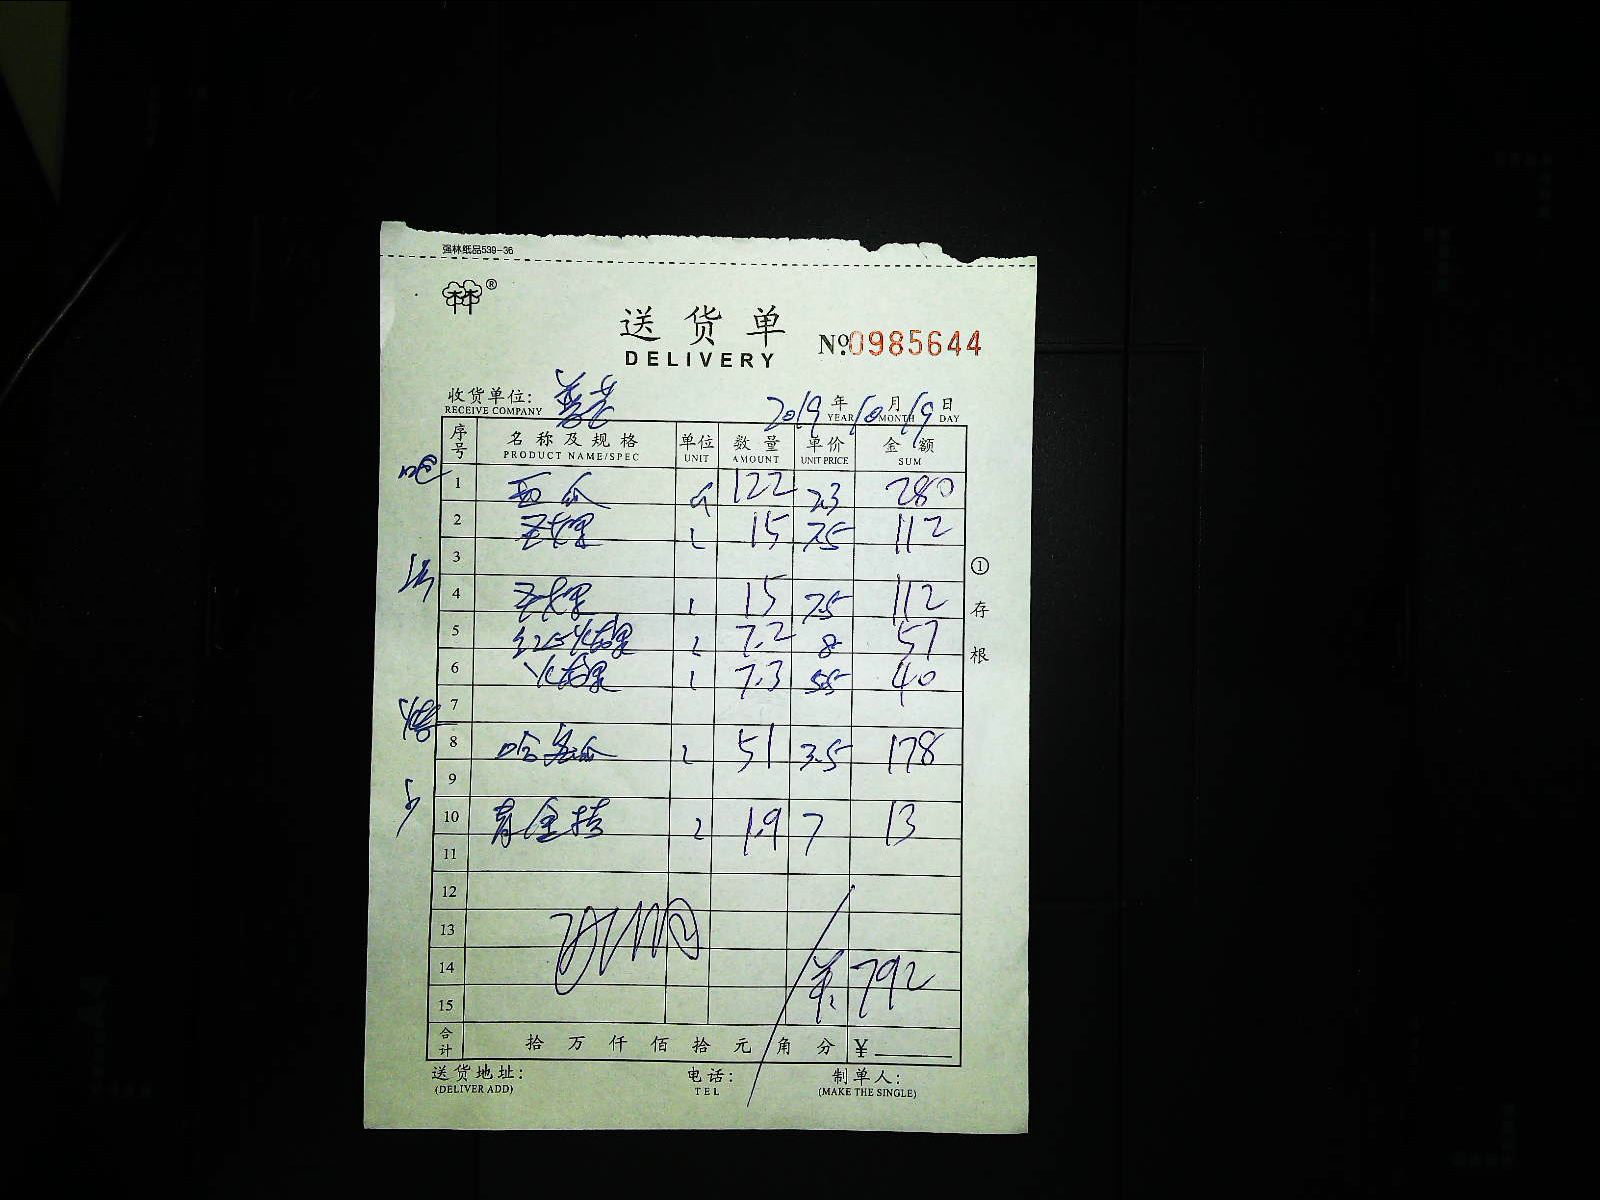 强林纸品539-36
林®
送货单
DELIVERY
№.0985644
收货单位:
RECEIVE COMPANY
2019年10月19日
YEAR MONTH DAY
序号 名称及规格 单位 数量 单价 金额
PRODUCT NAME/SPEC UNIT AMOUNT UNIT PRICE SUM
1 西瓜 122 2.3 280
2 15 7.5 112
3
4 15 7.5 112
5 红心火龙果 7.2 8 57
6 火龙果 7.3 5.5 40
7
8 哈密瓜 51 3.5 178
9
10 青金桔 1.9 7 13
11
12
13
14 792
15
合计 拾 万 仟 佰 拾 元 角 分 ¥
①存根
送货地址: 电话: 制单人:
(DELIVER ADD) TEL (MAKE THE SINGLE)